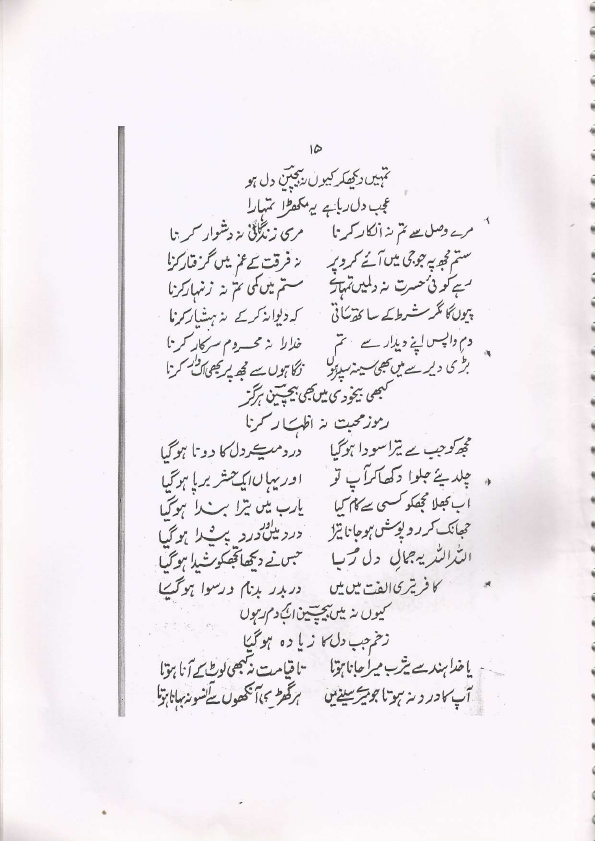 ۱۵
تمہیں دیکھکر کیوں نہ بیچین دل ہو
عجب دل رُبا ہے یہ مکھڑا تمہارا
مرے وصل سے تم نہ انکار کرنا مری زندگانی نہ دشوار کرنا
ستم مجھ پہ جو جی میں آئے کرو پر نہ فرقت کے غم میں گرفتار کرنا
رہے کوئی حسرت نہ دلمیں تمہارے ستم میں کمی تم نہ زنہار کرنا
پیوں گا مگر شرط کے ساتھ ساقی کہ دیوانہ کر کے نہ ہشیار کرنا
دمِ واپس اپنے دیدار سے تم خدارا نہ محروم سرکار کرنا
بڑی دیر سے میں بھی سینہ سپر ہوں نگاہوں سے مجھ پر بھی اک وار کرنا
کبھی بیخودی میں بھی بیچین ہرگز
رموز محبت نہ اظہار کرنا
مجھ کو جب سے تیرا سودا ہوگیا درد میرے دل کا دونا ہوگیا
چلدیئے جلوا دکھا کر آپ تو اور یہاں ایک حشر برپا ہوگیا
اب بھلا مجھکو کسی سے کام کیا یارب میں تیرا بندا ہوگیا
جھانک کر روپوش ہو جانا ترا درد میں اور درد پیدا ہوگیا
اللہ اللہ یہ جمالِ دل رُبا جس نے دیکھا تجھکو شیدا ہوگیا
کافر تیری الفت میں میں دربدر بدنام و رسوا ہوگیا
کیوں نہ میں بیچین اب ہر دم رہوں
زخم جب دل کا زیادہ ہوگیا
یا خدا ہند سے یثرب میرا جانا ہوتا تا قیامت نہ کبھی لوٹ کے آنا ہوتا
آپ کا درد نہ ہوتا جو میرے سینے میں ہر گھڑی آنکھوں سے آنسو نہ بہانا ہوتا